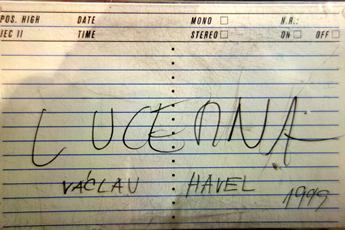 POS. HIGH DATE MONO N.R.:
IEC II TIME STEREO ON OFF
LUCERNA
VÁCLAV HAVEL 1999